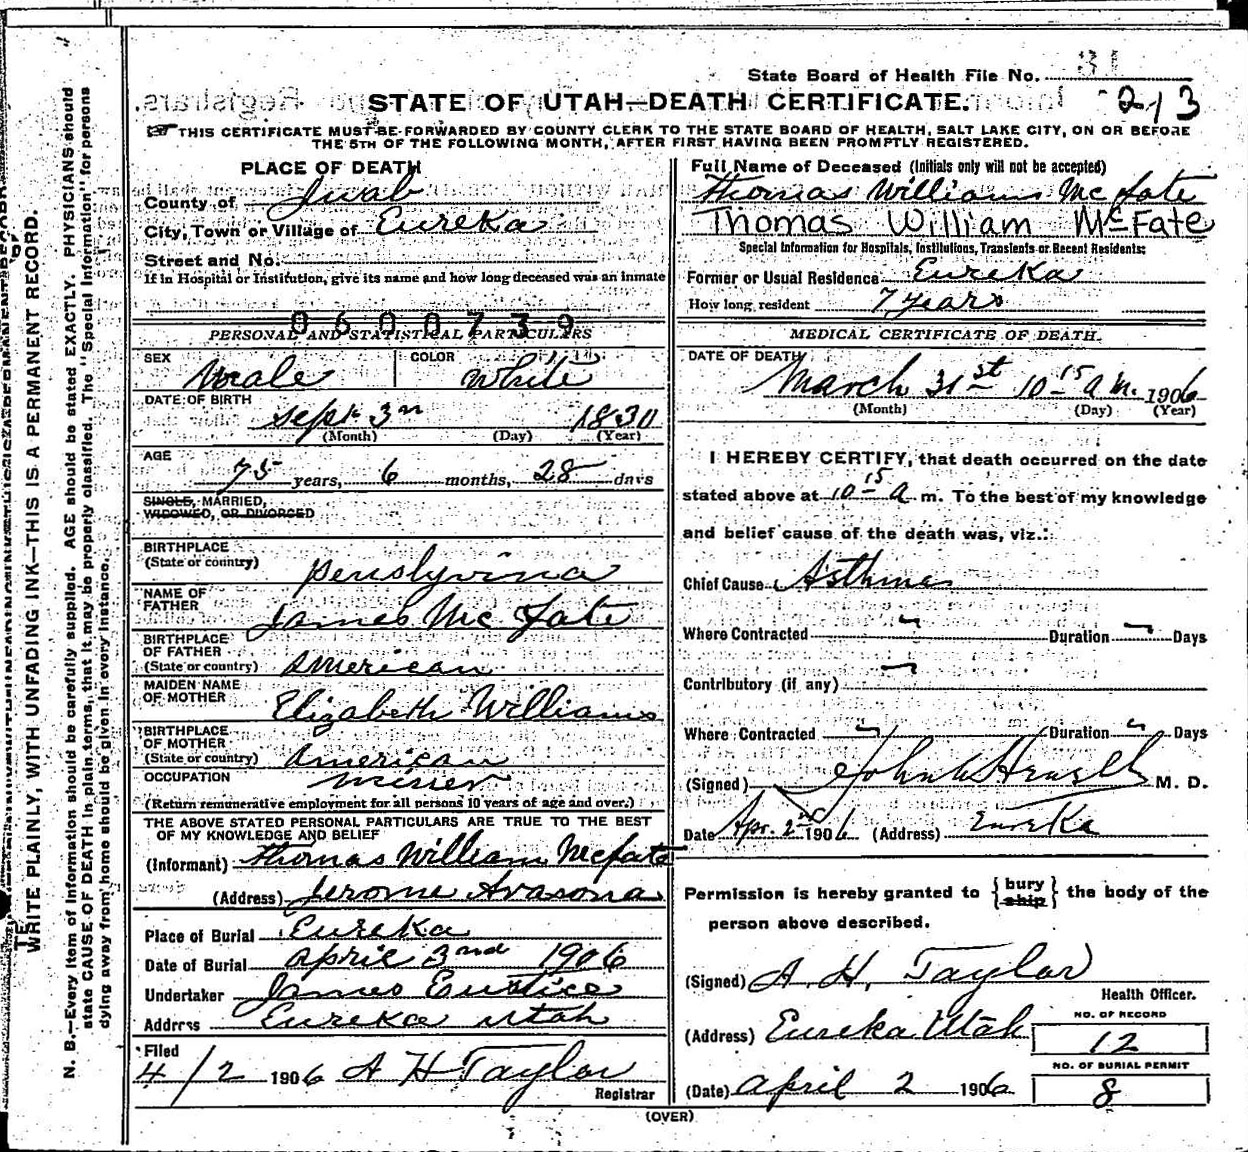 State Board of Health File No. 31
213
STATE OF UTAH—DEATH CERTIFICATE.
THIS CERTIFICATE MUST BE FORWARDED BY COUNTY CLERK TO THE STATE BOARD OF HEALTH, SALT LAKE CITY, ON OR BEFORE
THE 5TH OF THE FOLLOWING MONTH, AFTER FIRST HAVING BEEN PROMPTLY REGISTERED.
PLACE OF DEATH
County of Juab
City, Town or Village of Eureka
Street and No.
If in Hospital or Institution, give its name and how long deceased was an inmate
0600739
PERSONAL AND STATISTICAL PARTICULARS
SEX Male COLOR White
DATE OF BIRTH
Sept 3rd 1830
(Month) (Day) (Year)
AGE
75 years, 6 months, 28 days
SINGLE, MARRIED,
WIDOWED, OR DIVORCED
BIRTHPLACE
(State or country) Penslyvina
NAME OF
FATHER James Mc Fate
BIRTHPLACE
OF FATHER
(State or country) American
MAIDEN NAME
OF MOTHER Elizabeth Williams
BIRTHPLACE
OF MOTHER
(State or country) American
OCCUPATION miner
(Return remunerative employment for all persons 10 years of age and over.)
THE ABOVE STATED PERSONAL PARTICULARS ARE TRUE TO THE BEST
OF MY KNOWLEDGE AND BELIEF
(Informant) Thomas William McFate
(Address) Jerome Arasona
Place of Burial Eureka
Date of Burial april 3nd 1906
Undertaker James Eustice
Address Eureka utah
Filed
4/2 1906 A H Taylor
Registrar
Full Name of Deceased (Initials only will not be accepted)
Thomas Williams Mc Fate
Thomas William McFate
Special Information for Hospitals, Institutions, Transients or Recent Residents:
Former or Usual Residence Eureka
How long resident 7 years
MEDICAL CERTIFICATE OF DEATH.
DATE OF DEATH
March 31st 10 15 a m. 1906
(Month) (Day) (Year)
I HEREBY CERTIFY, that death occurred on the date
stated above at 10 15 a m. To the best of my knowledge
and belief cause of the death was, viz.:
Chief Cause Asthma
Where Contracted " Duration " Days
Contributory (if any) "
Where Contracted " Duration " Days
(Signed) John M. D.
Date Apr. 2nd 1906 (Address) Eureka
Permission is hereby granted to {bury ship} the body of the
person above described.
(Signed) A. H. Taylor
Health Officer.
(Address) Eureka Utah
NO. OF RECORD
12
NO. OF BURIAL PERMIT
8
(Date) april 2 1906
(OVER)
WRITE PLAINLY, WITH UNFADING INK—THIS IS A PERMANENT RECORD.
N. B.—Every item of information should be carefully supplied. AGE should be stated EXACTLY. PHYSICIANS should
state CAUSE OF DEATH in plain terms, that it may be properly classified. The "Special Information" for persons
dying away from home should be given in every instance.